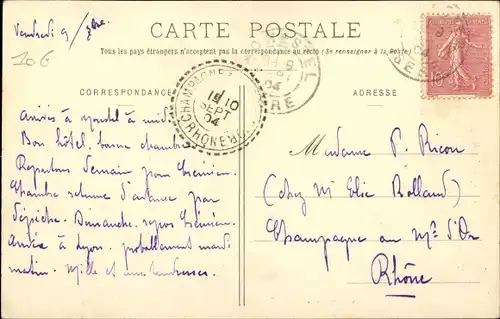 Vendredi 9/7bre
CARTE POSTALE
Tous les pays étrangers n'acceptent pas la correspondance au recto (Se renseigner à la Poste)
CORRESPONDANCE
ADRESSE
CHAMPAGNE
10
SEPT
04
RHONE
04
Arrivés à à midi
Bon hôtel, bonne chambre
Repartons Demain pour
Chambre retenue d'avance par
Dépêche. Dimanche, repos
Arrivée à Lyon, probablement mardi
matin. Mille et une tendresses.
Madame P. Ricou
(chez Mr Elie Rolland)
Champagne au Mt d'Or
Rhône